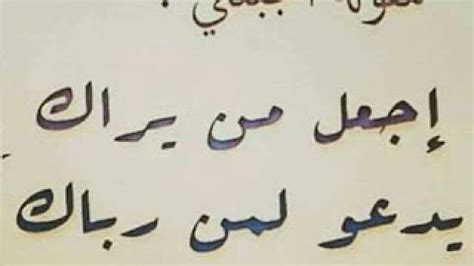 إجعل من يراك
يدعو لمن رباك